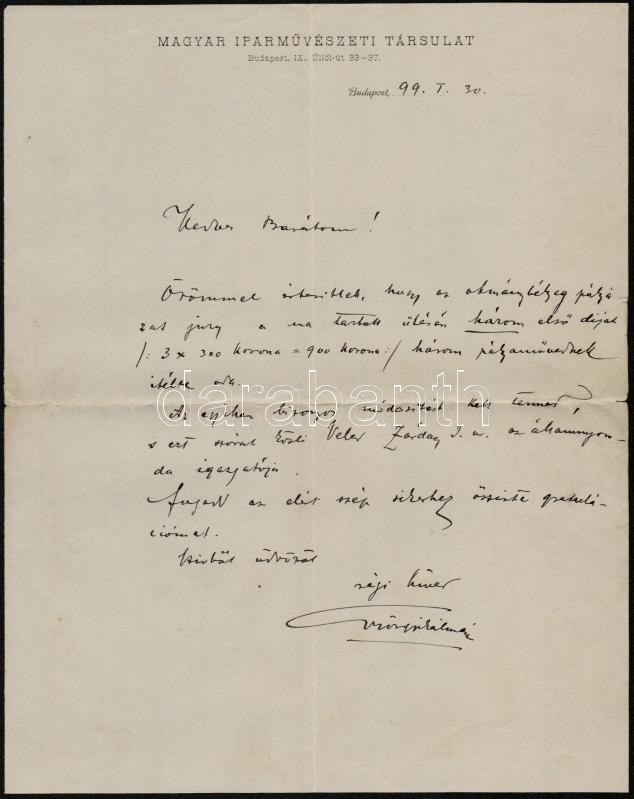 MAGYAR IPARMŰVÉSZETI TÁRSULAT
Budapest, IX., Üllői-út 33–37.
Budapest, 99. I. 30.
Kedves Barátom!
Örömmel értesítlek, hogy az okmánybélyeg pályá-
zat jury a ma tartott ülésén három első díjat
/: 3 x 300 korona = 900 korona :/ három pályaművednek
ítélte oda.
Az egyiken bizonyos módosítást kell tenned,
s ezt szóval közli Veled Zarday I. ur. az államnyom-
da igazgatója.
Fogadd az elért szép sikerhez őszinte gratulá-
ciómat.
Szívből üdvözöl
régi híved
Györgyi Kálmán
darabanth